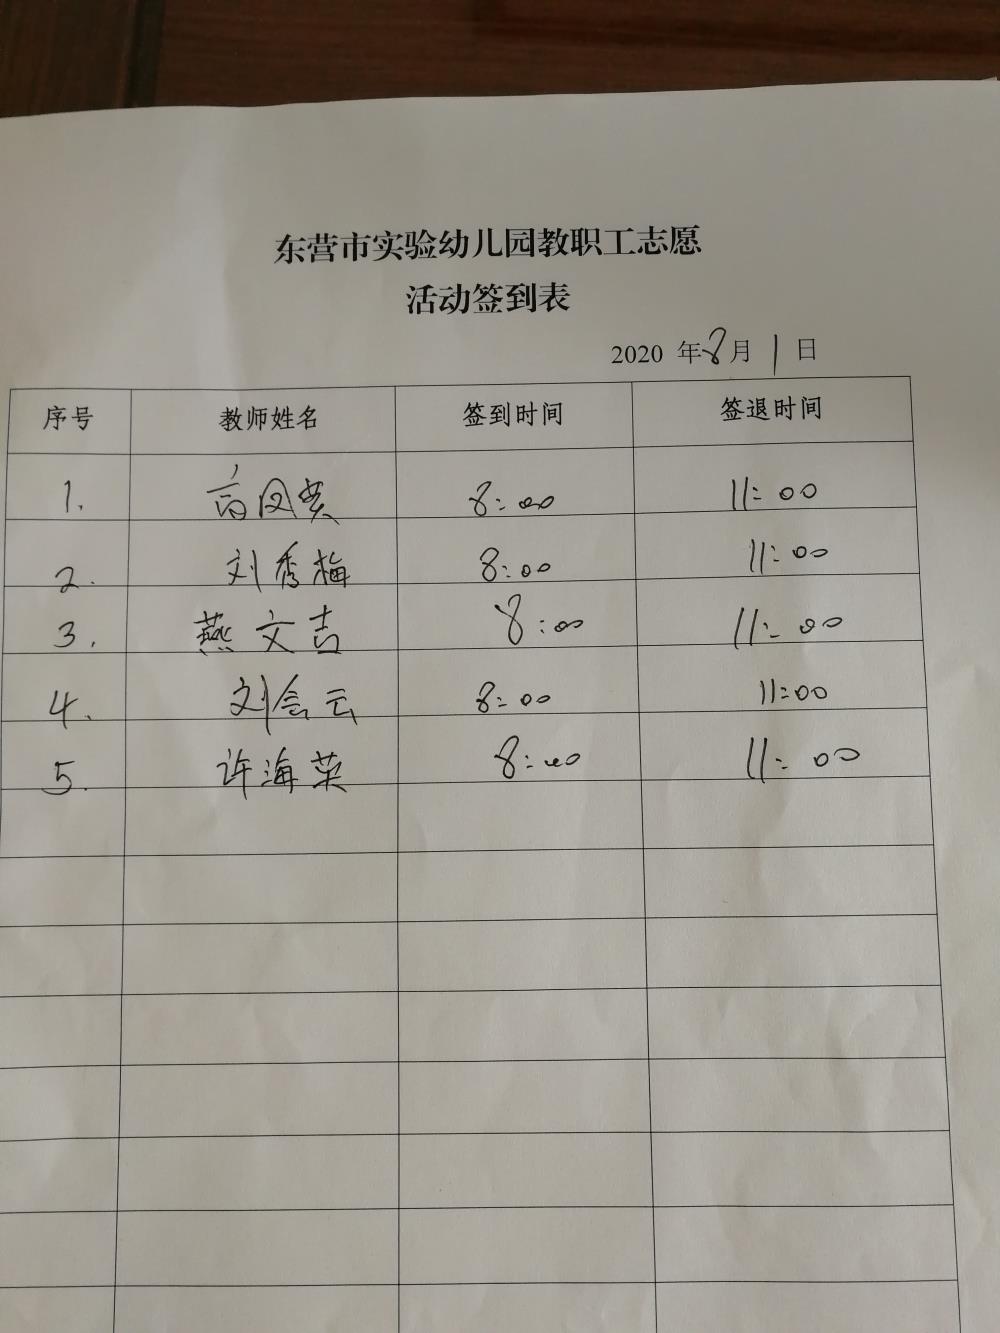 东营市实验幼儿园教职工志愿
活动签到表
2020 年 8 月 1 日
序号 教师姓名 签到时间 签退时间
1. 高凤 8:00 11:00
2. 刘秀梅 8:00 11:00
3. 燕文吉 8:00 11:00
4. 刘会云 8:00 11:00
5. 许海英 8:00 11:00